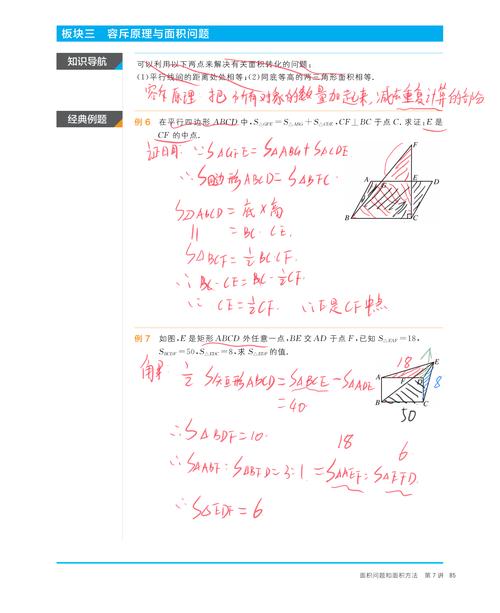 板块三 容斥原理与面积问题
知识导航
可以利用以下两点来解决有关面积转化的问题:
(1)平行线间的距离处处相等;(2)同底等高的两三角形面积相等.
容斥原理 把所有对象的数量加起来,减去重复计算的部分
经典例题
例 6 在平行四边形 ABCD 中,S△GFE=S△ABG+S△CDE,CF⊥BC 于点 C. 求证:E 是
CF 的中点.
证明: ∵S△GFE=S△ABG+S△CDE
∴S四边形ABCD=S△BFC.
S▱ABCD=底×高
=BC·CE.
S△BCF=½BC·CF.
∴BC·CE=BC·½CF.
∴CE=½CF. ∴E是CF中点
F
A G E D
B C
例 7 如图,E 是矩形 ABCD 外任意一点,BE 交 AD 于点 F,已知 S△EAF=18,
SBCDF=50,S△EDC=8,求 S△EDF 的值.
解: ½S矩形ABCD=S△BCE-S△ADE
=40.
∴S△BDF=10.
18 6
∴S△ABF:S△BFD=3:1=S△AEF:S△EFD.
∴S△EDF=6.
18
E
A F D 8
B C
50
面积问题和面积方法 第 7 讲 85